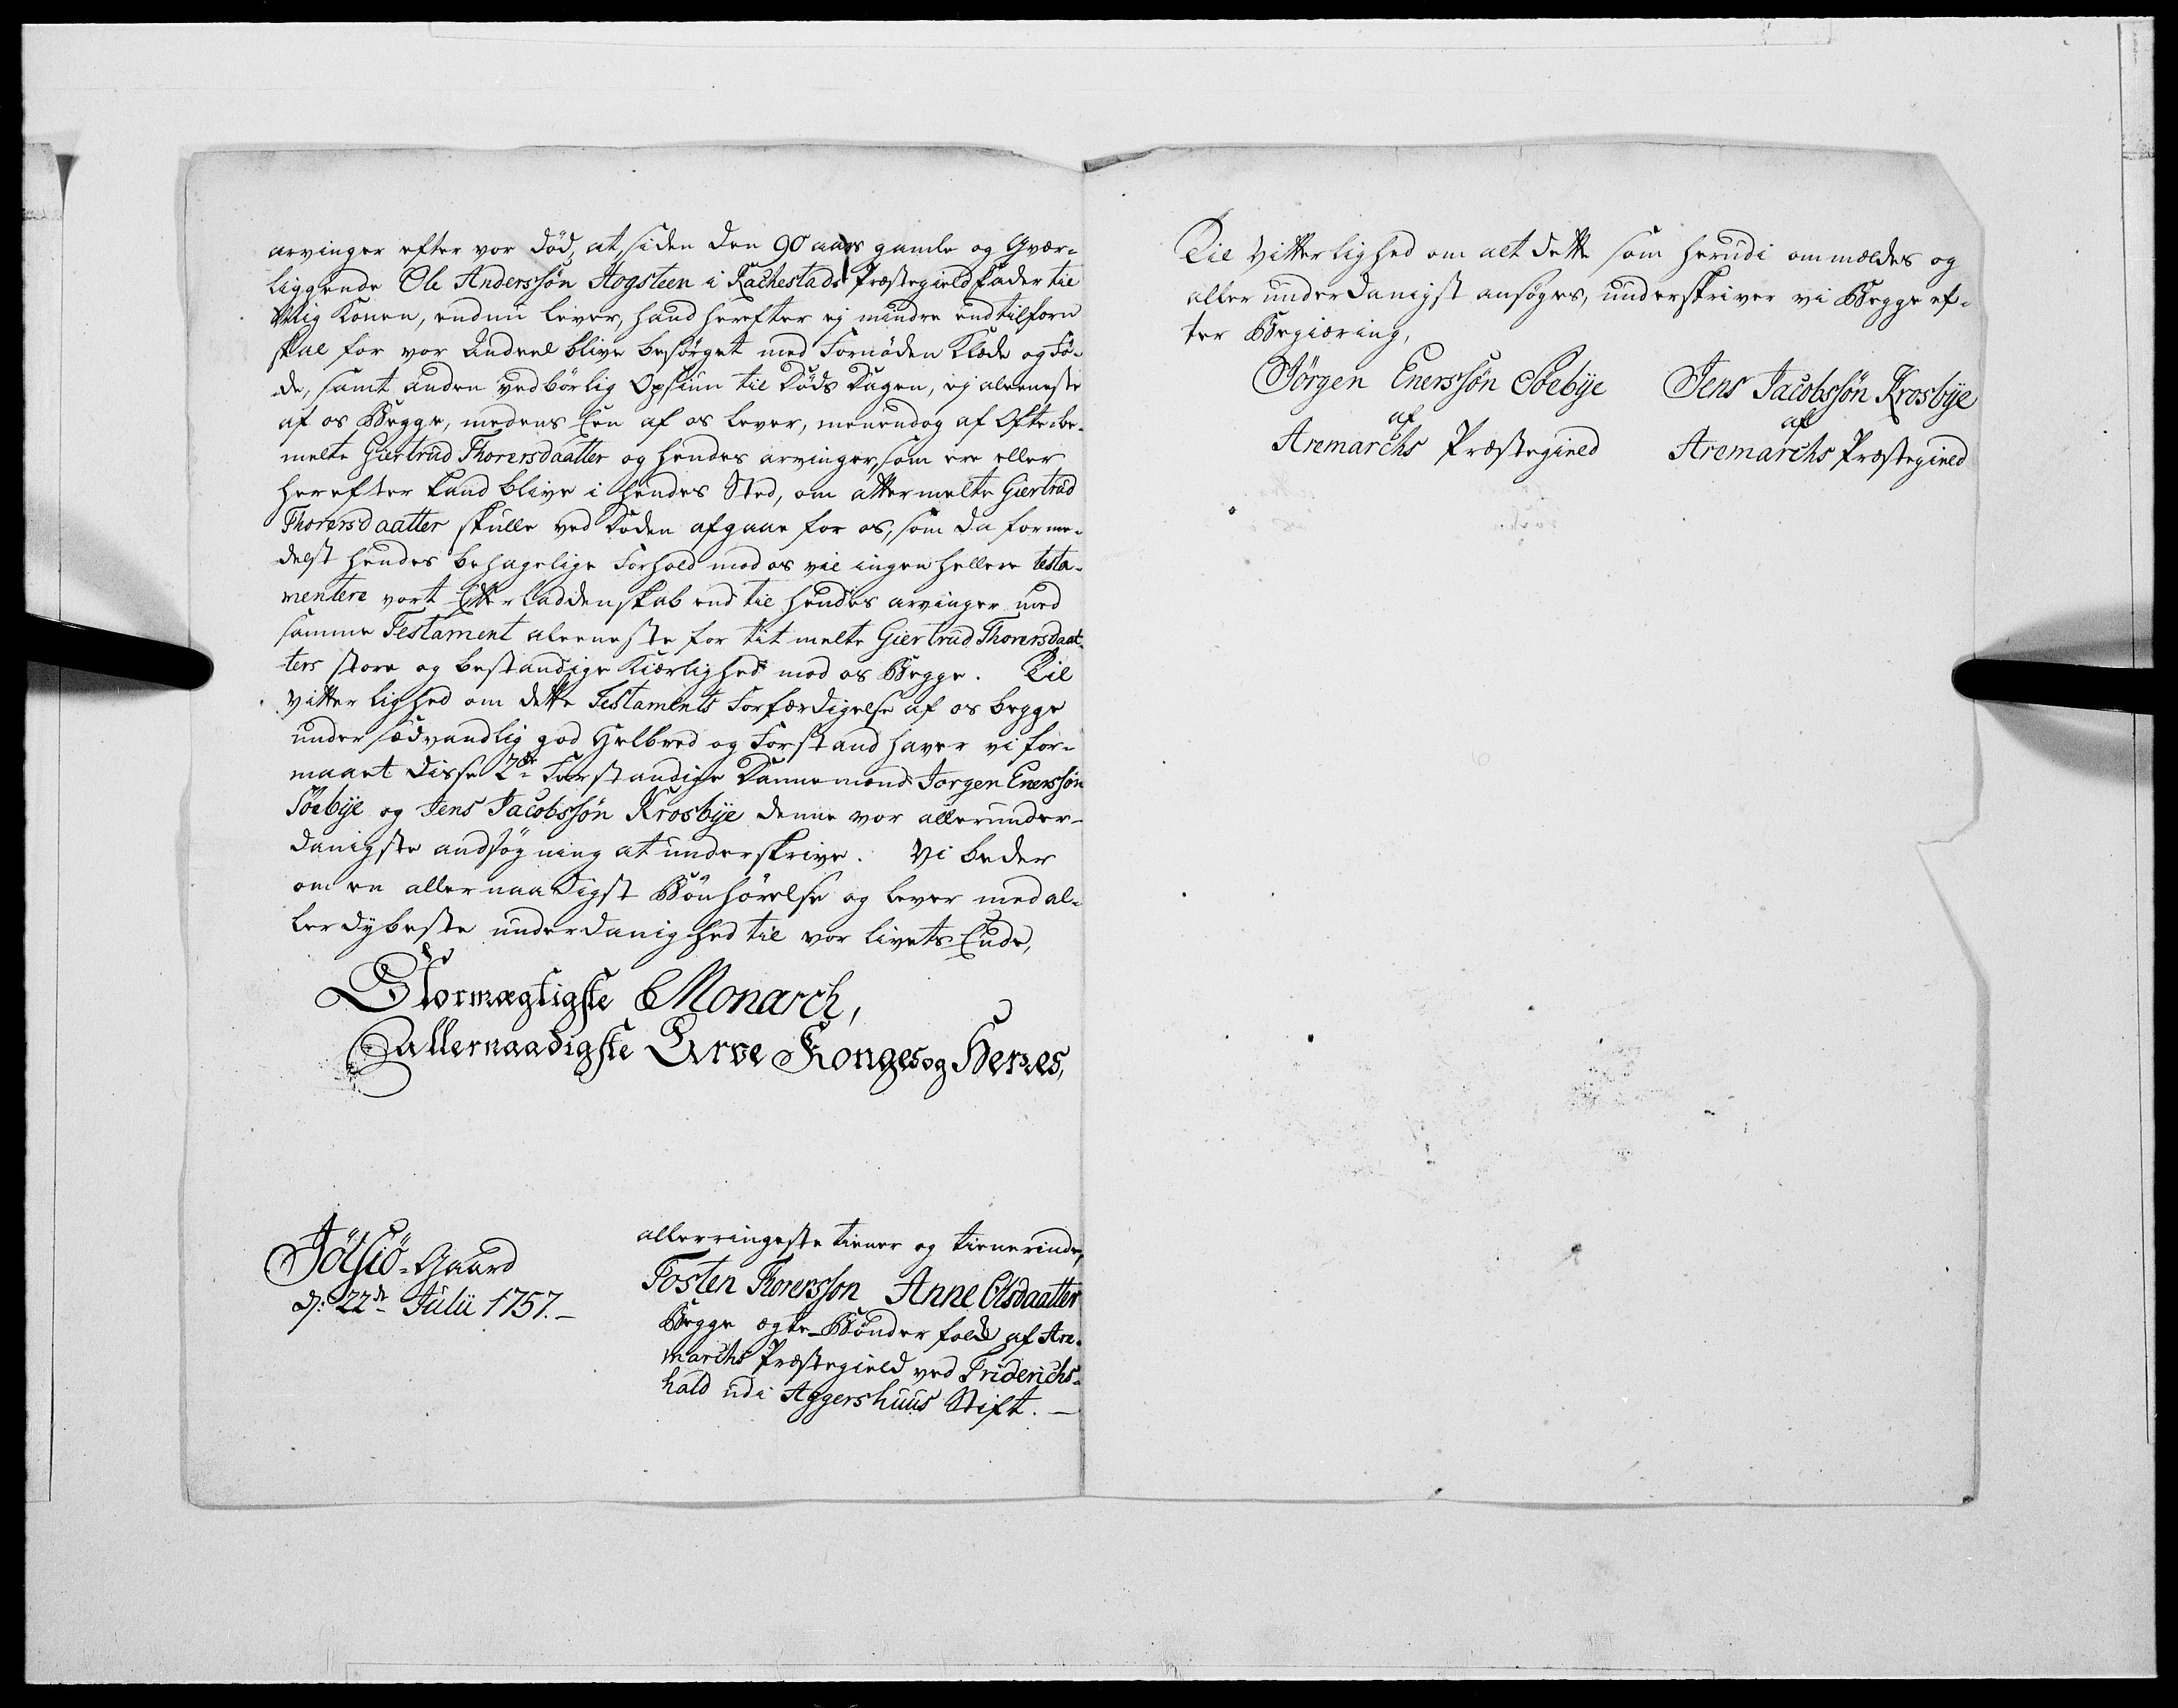 arvinger efter vor Død, at, siden den 90 aars gamle og Qvær-
liggende Ole Anderssøn Høgsteen i Rachestads Præstegield fader til
Mig Konen, endnu lever, hand herefter ej mindre end tilforn
skal for vor Andeel blive besørget med Fornøden Klæde og Fø-
de, samt anden vedbørlig Opsiun til Døds Dagen, ej aleeneste
af os Begge, medens Een af os lever, men endog af Oftbe-
melte Giertrud Thorersdaatter og hendes arvinger, som ere eller
herefter kand blive i hendes Sted, om attermelte Giertrud
Thorersdaatter skulle ved Døden afgaae for os, som da forme-
delst hendes behagelige Forhold mod os vil ingen hellere testa-
mentere vort Efterladdenskab end til hendes arvinger med
samme Testament aleeneste for tit melte Giertrud Thorersdaat-
ters store og bestandige Kiærlighed mod os Begge. Til
Vitterlighed om dette Testaments Forfærdigelse af os begge
under sædvandlig god Helbred og Forstand haver vi for-
maaet disse 2de Forstandige Dannemænd Jørgen Enerssøn
Søebye og Jens Jacobssøn Krosbye denne vor allerunder-
danigste andsøgning at underskrive. Vi beder
om en allernaadigst Bønhørelse og lever med al-
lerdybeste underdanighed til vor livets Ende,
Stormægtigste Monarch,
allernaadigste Arve Konges og Herres,
allerringeste tiener og tienerinde,
Jølsiø-Gaard
d: 22de Julii 1757.
Tosten Thorerssøn Anne Olsdaatter
Begge ægte-Bønder folk af Are-
marchs Præstegield ved Friderichs-
hald udi Aggershuus Stift.
Til Vitterlighed om alt dette som herudi ommældes og
allerunderdanigst ansøges, underskriver vi Begge ef-
ter Begiæring,
Jörgen Enerssøn Søebye Jens Jacobssøn Krosbye
af af
Aremarchs Præstegield Aremarchs Præstegield